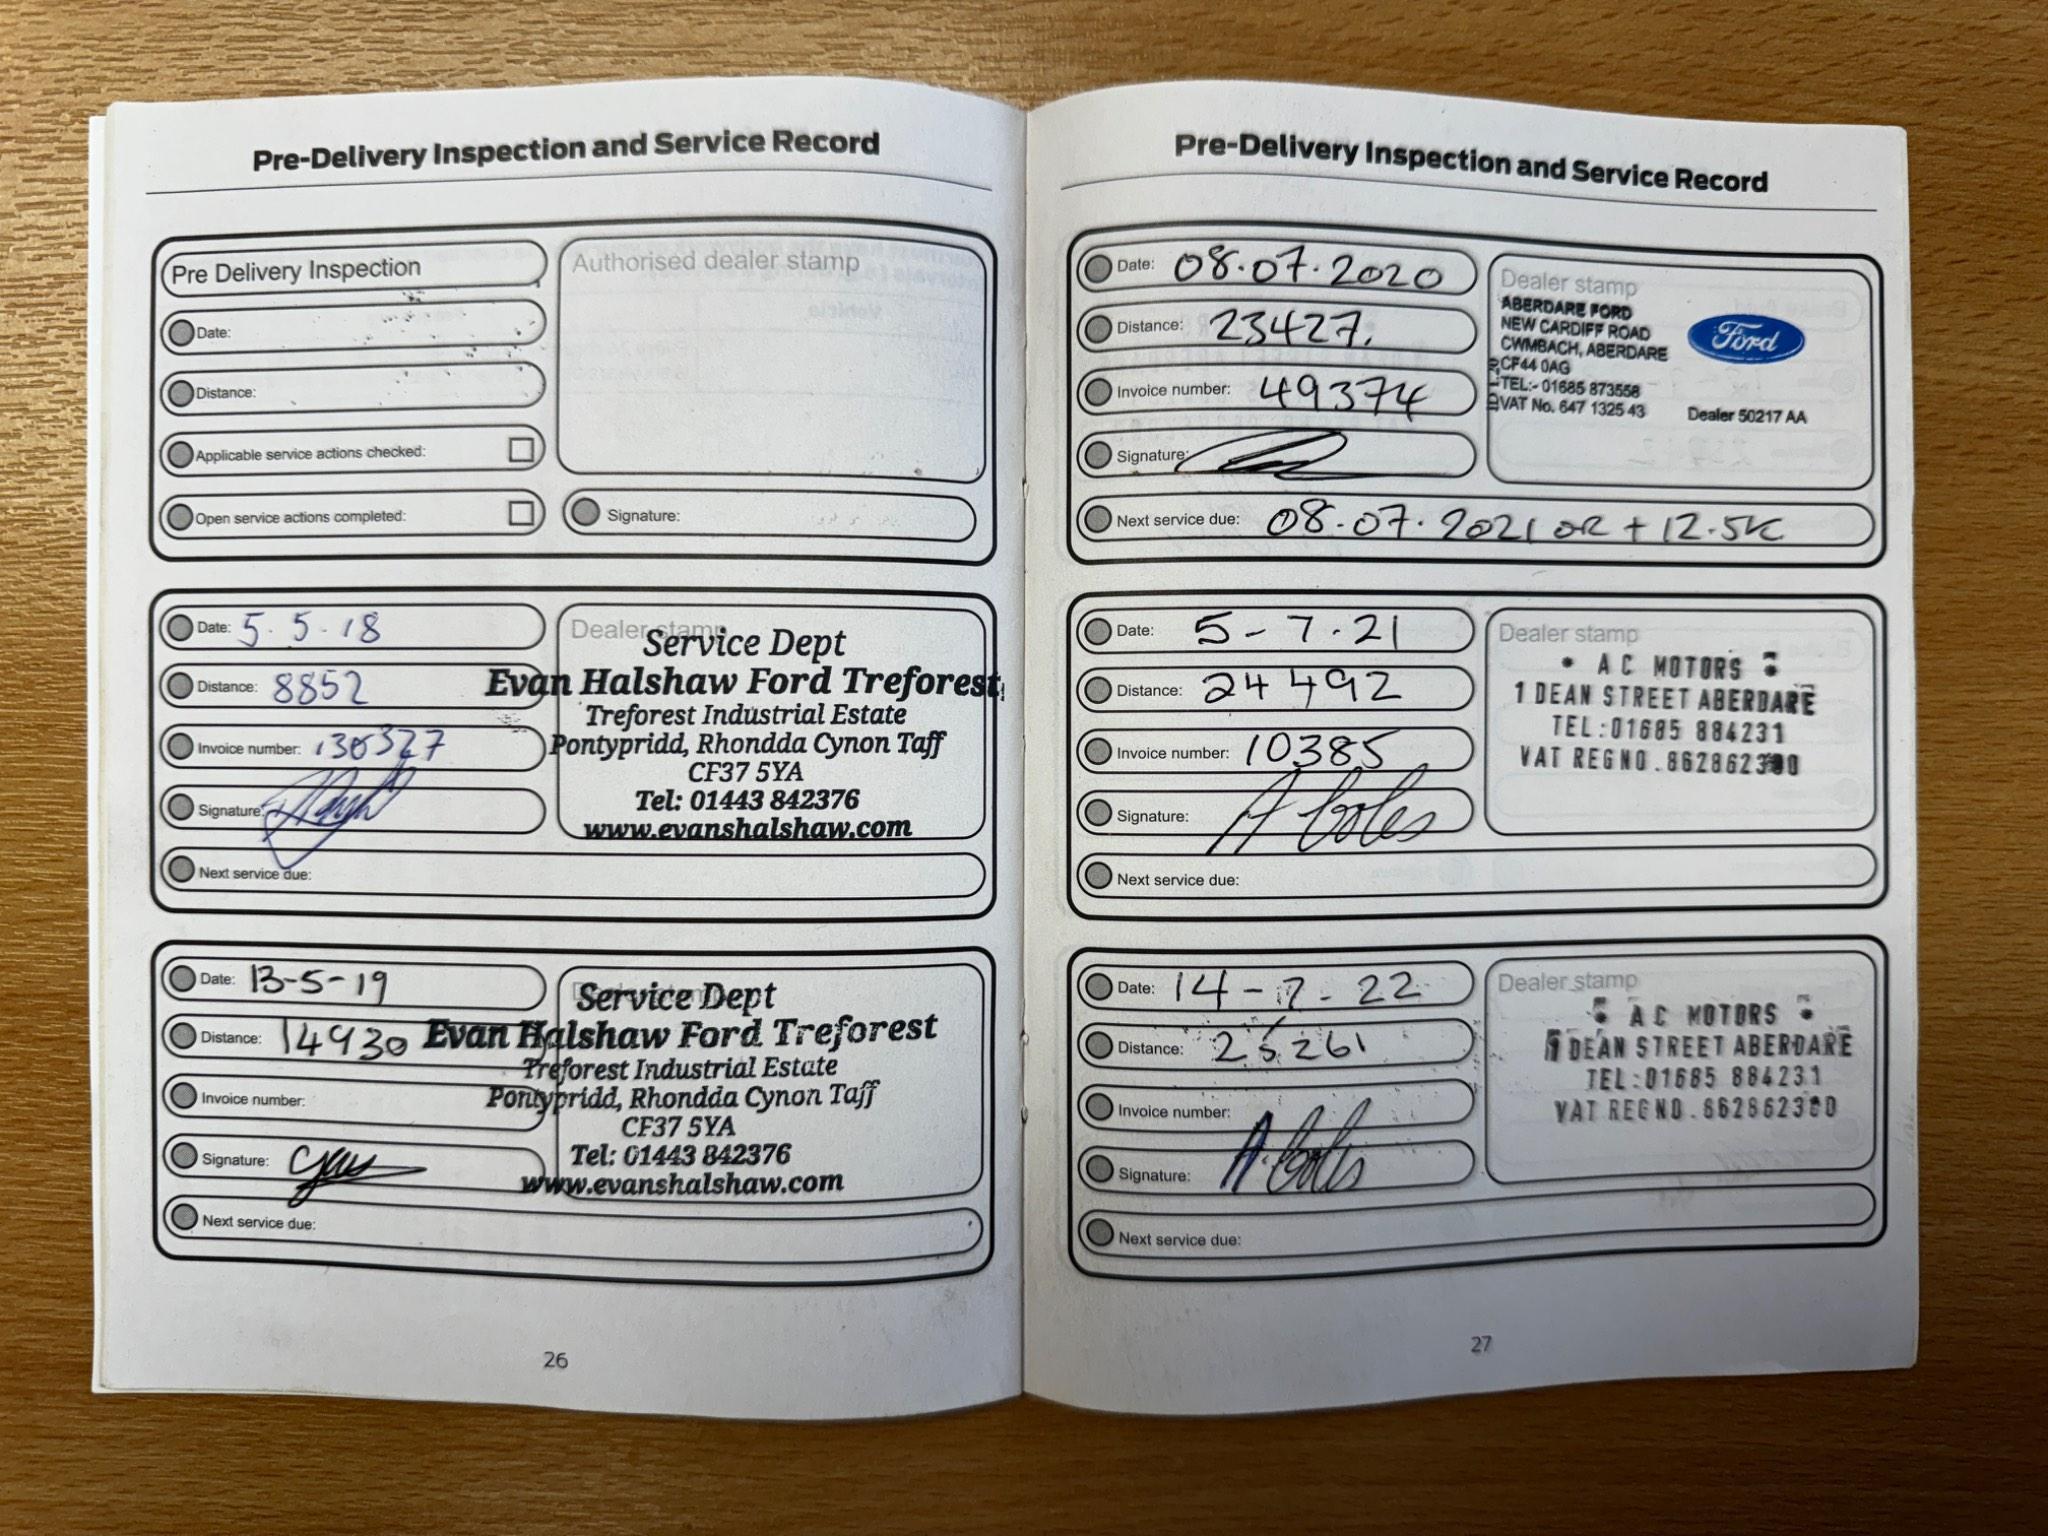 Pre-Delivery Inspection and Service Record
Pre Delivery Inspection
Authorised dealer stamp
Date:
Distance:
Applicable service actions checked:
Open service actions completed:
Signature:
Date: 5.5.18
Distance: 8852
Invoice number: 130327
Signature:
Next service due:
Dealer stamp
Service Dept
Evan Halshaw Ford Treforest
Treforest Industrial Estate
Pontypridd, Rhondda Cynon Taff
CF37 5YA
Tel: 01443 842376
www.evanshalshaw.com
Date: 13-5-19
Distance: 14930
Invoice number:
Signature:
Next service due:
Service Dept
Evan Halshaw Ford Treforest
Treforest Industrial Estate
Pontypridd, Rhondda Cynon Taff
CF37 5YA
Tel: 01443 842376
www.evanshalshaw.com
26
Pre-Delivery Inspection and Service Record
Date: 08.07.2020
Distance: 23427.
Invoice number: 49374
Signature:
Next service due: 08.07.2021 OR + 12.5K
Dealer stamp
ABERDARE FORD
NEW CARDIFF ROAD
CWMBACH, ABERDARE
CF44 0AG
TEL:- 01685 873558
VAT No. 647 1325 43
Ford
Dealer 50217 AA
Date: 5-7.21
Distance: 24492
Invoice number: 10385
Signature: A Coles
Next service due:
Dealer stamp
A C MOTORS
1 DEAN STREET ABERDARE
TEL:01685 884231
VAT REG NO.
Date: 14-7-22
Distance: 25261
Invoice number:
Signature: A. Coles
Next service due:
Dealer stamp
A C MOTORS
1 DEAN STREET ABERDARE
TEL:01685 884231
VAT REG NO.
27